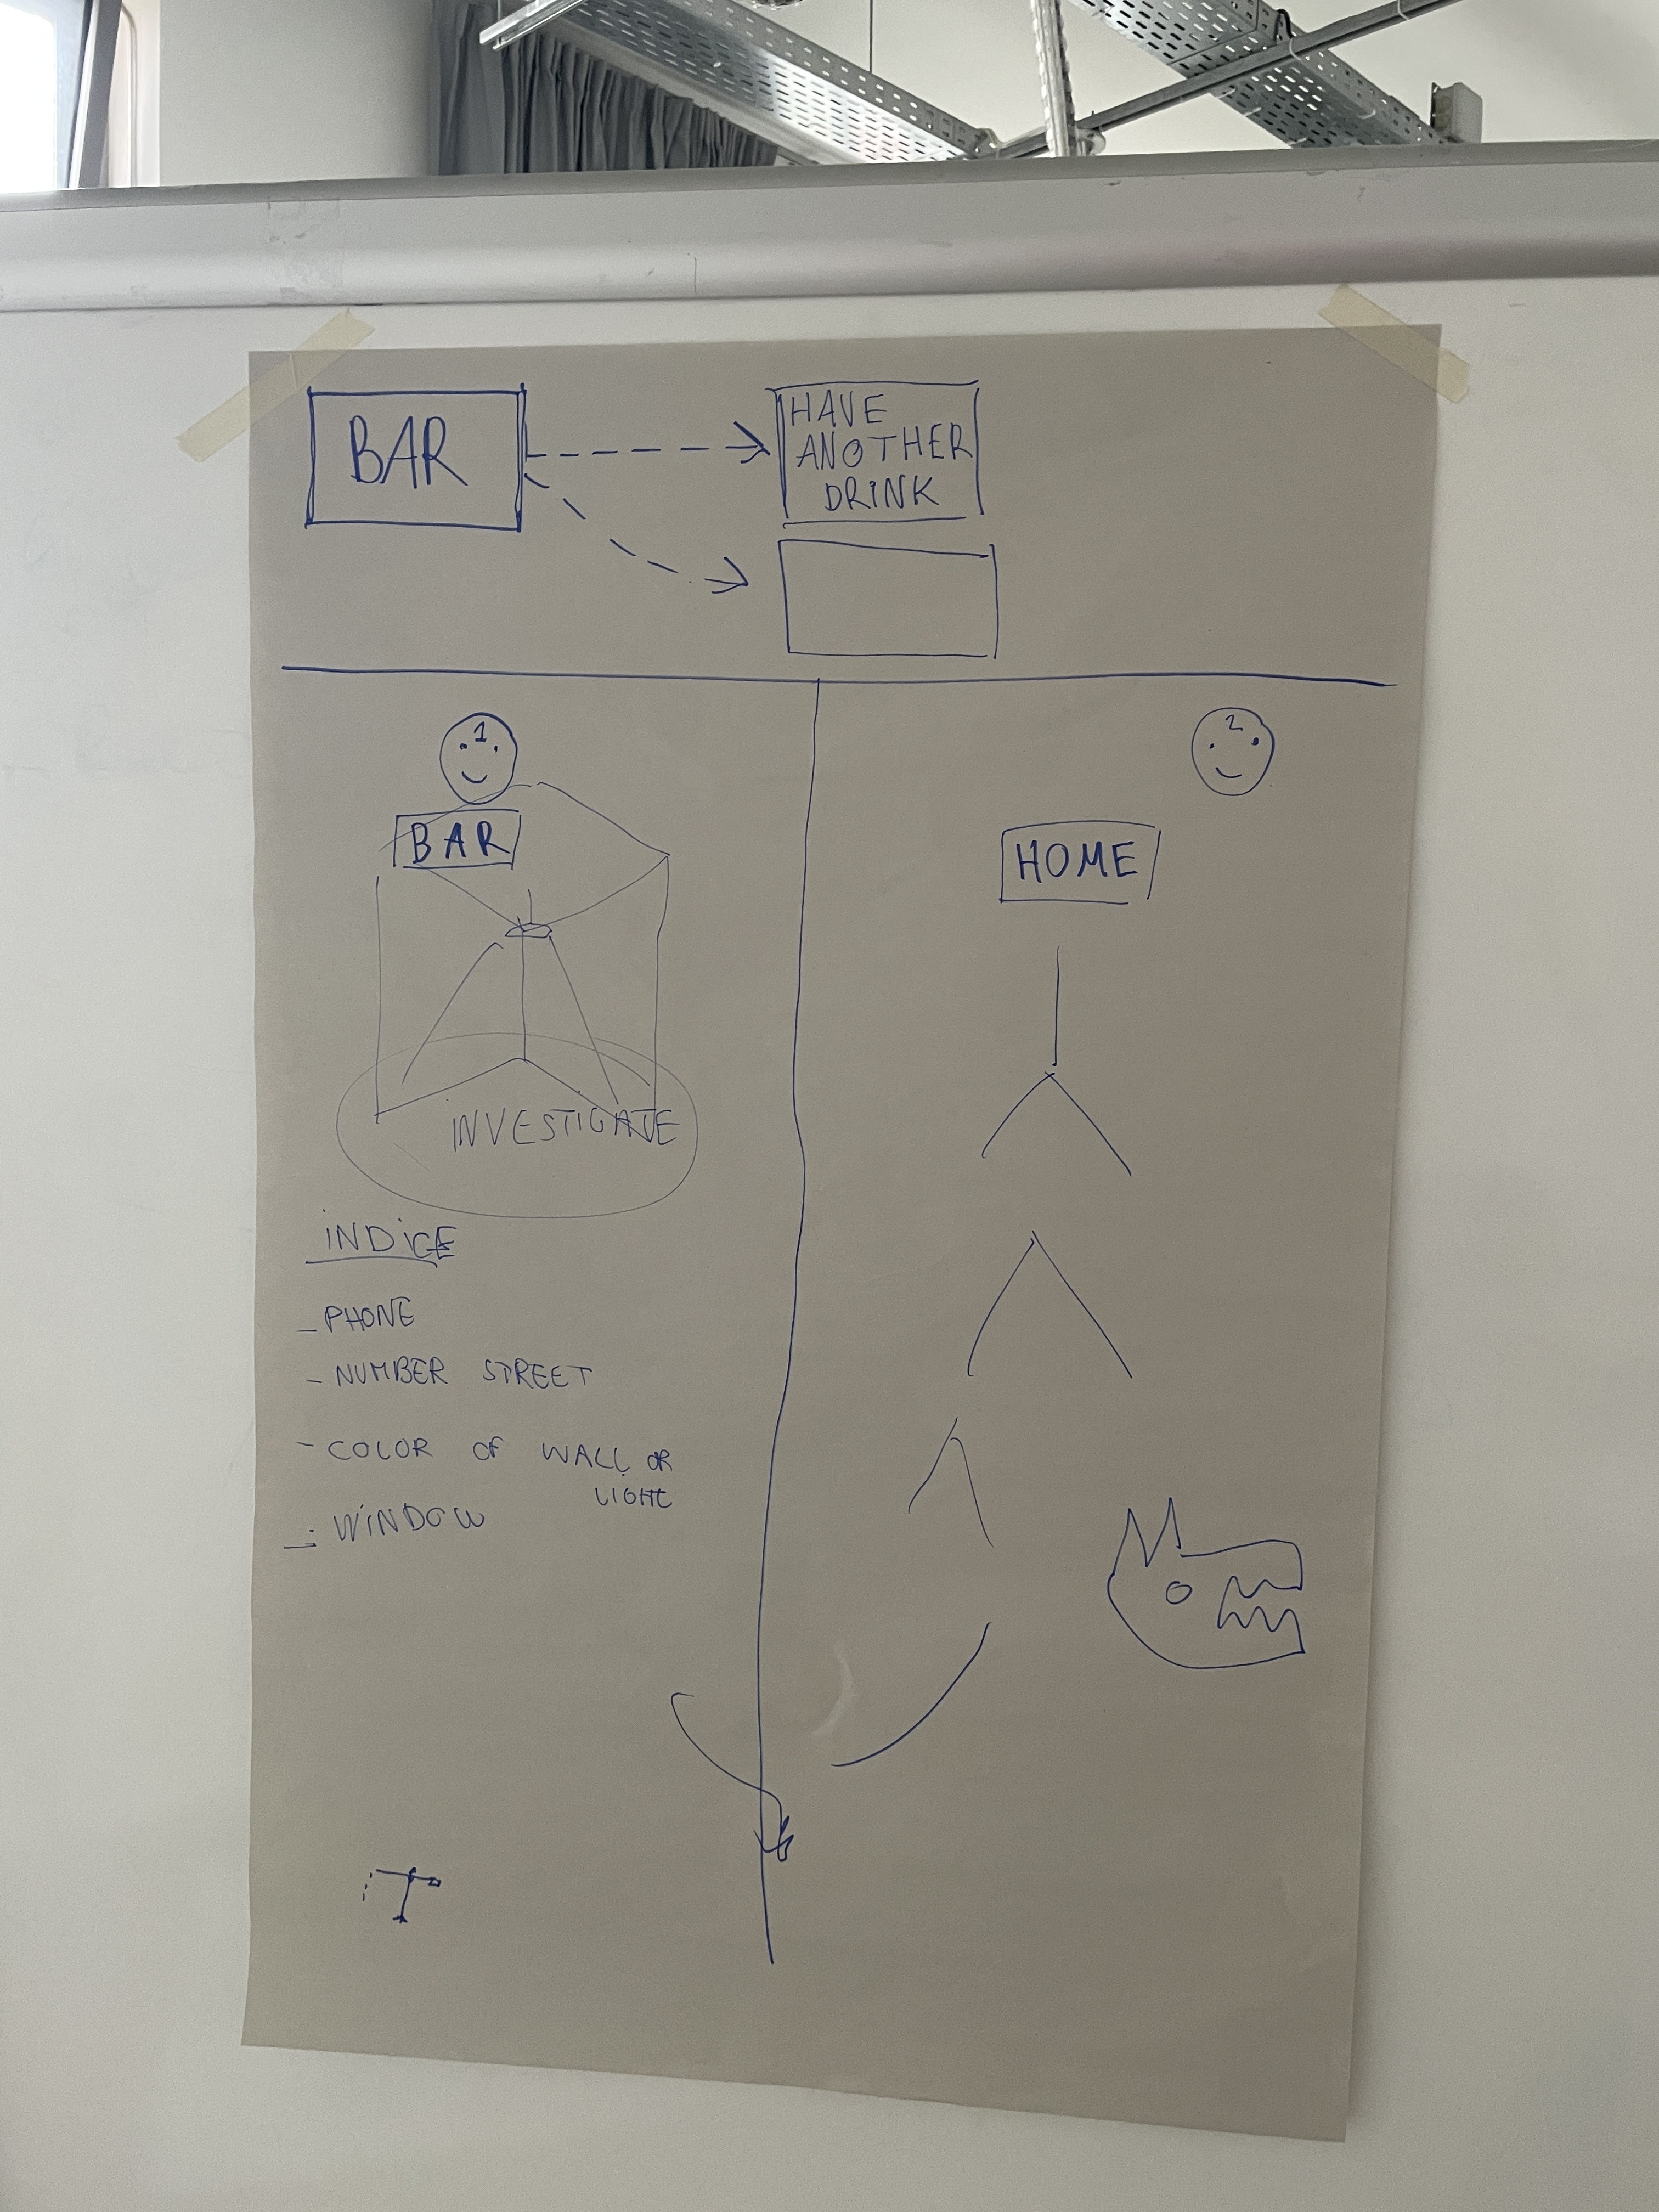 BAR
HAVE
ANOTHER
DRINK
1
2
BAR
HOME
INVESTIGATE
INDICE
- PHONE
- NUMBER STREET
- COLOR OF WALL OR
LIGHT
- WINDOW